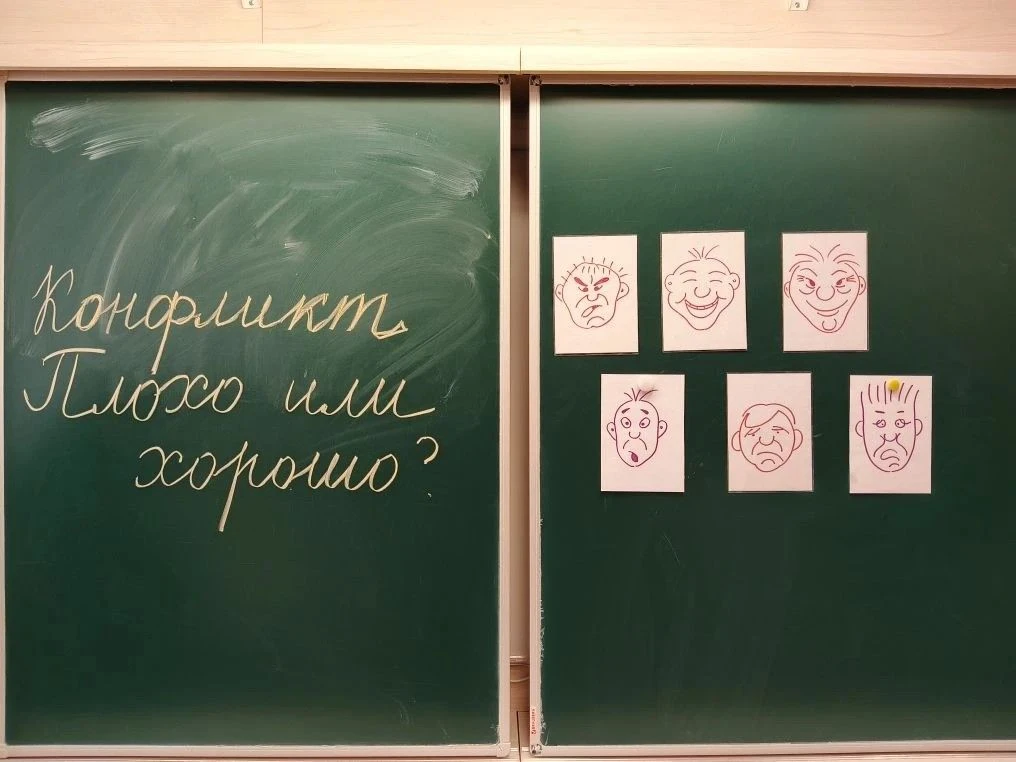 Конфликт.
Плохо или
хорошо?